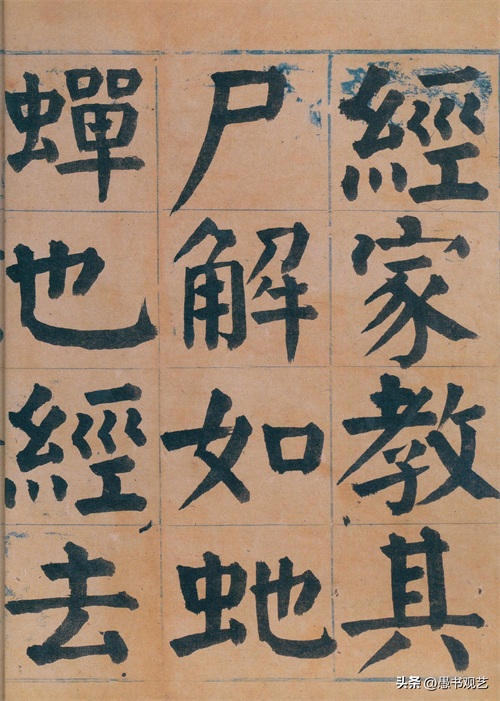 經家教其
尸解如虵
蟬也經去
头条 @愚书观艺